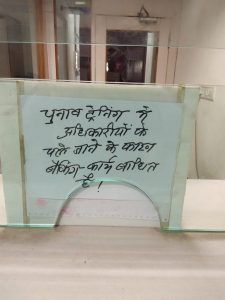 चुनाव ट्रेनिंग में
अधिकारीयों के
चले जाने के कारण
बैंकिंग-कार्य बाधित
है!